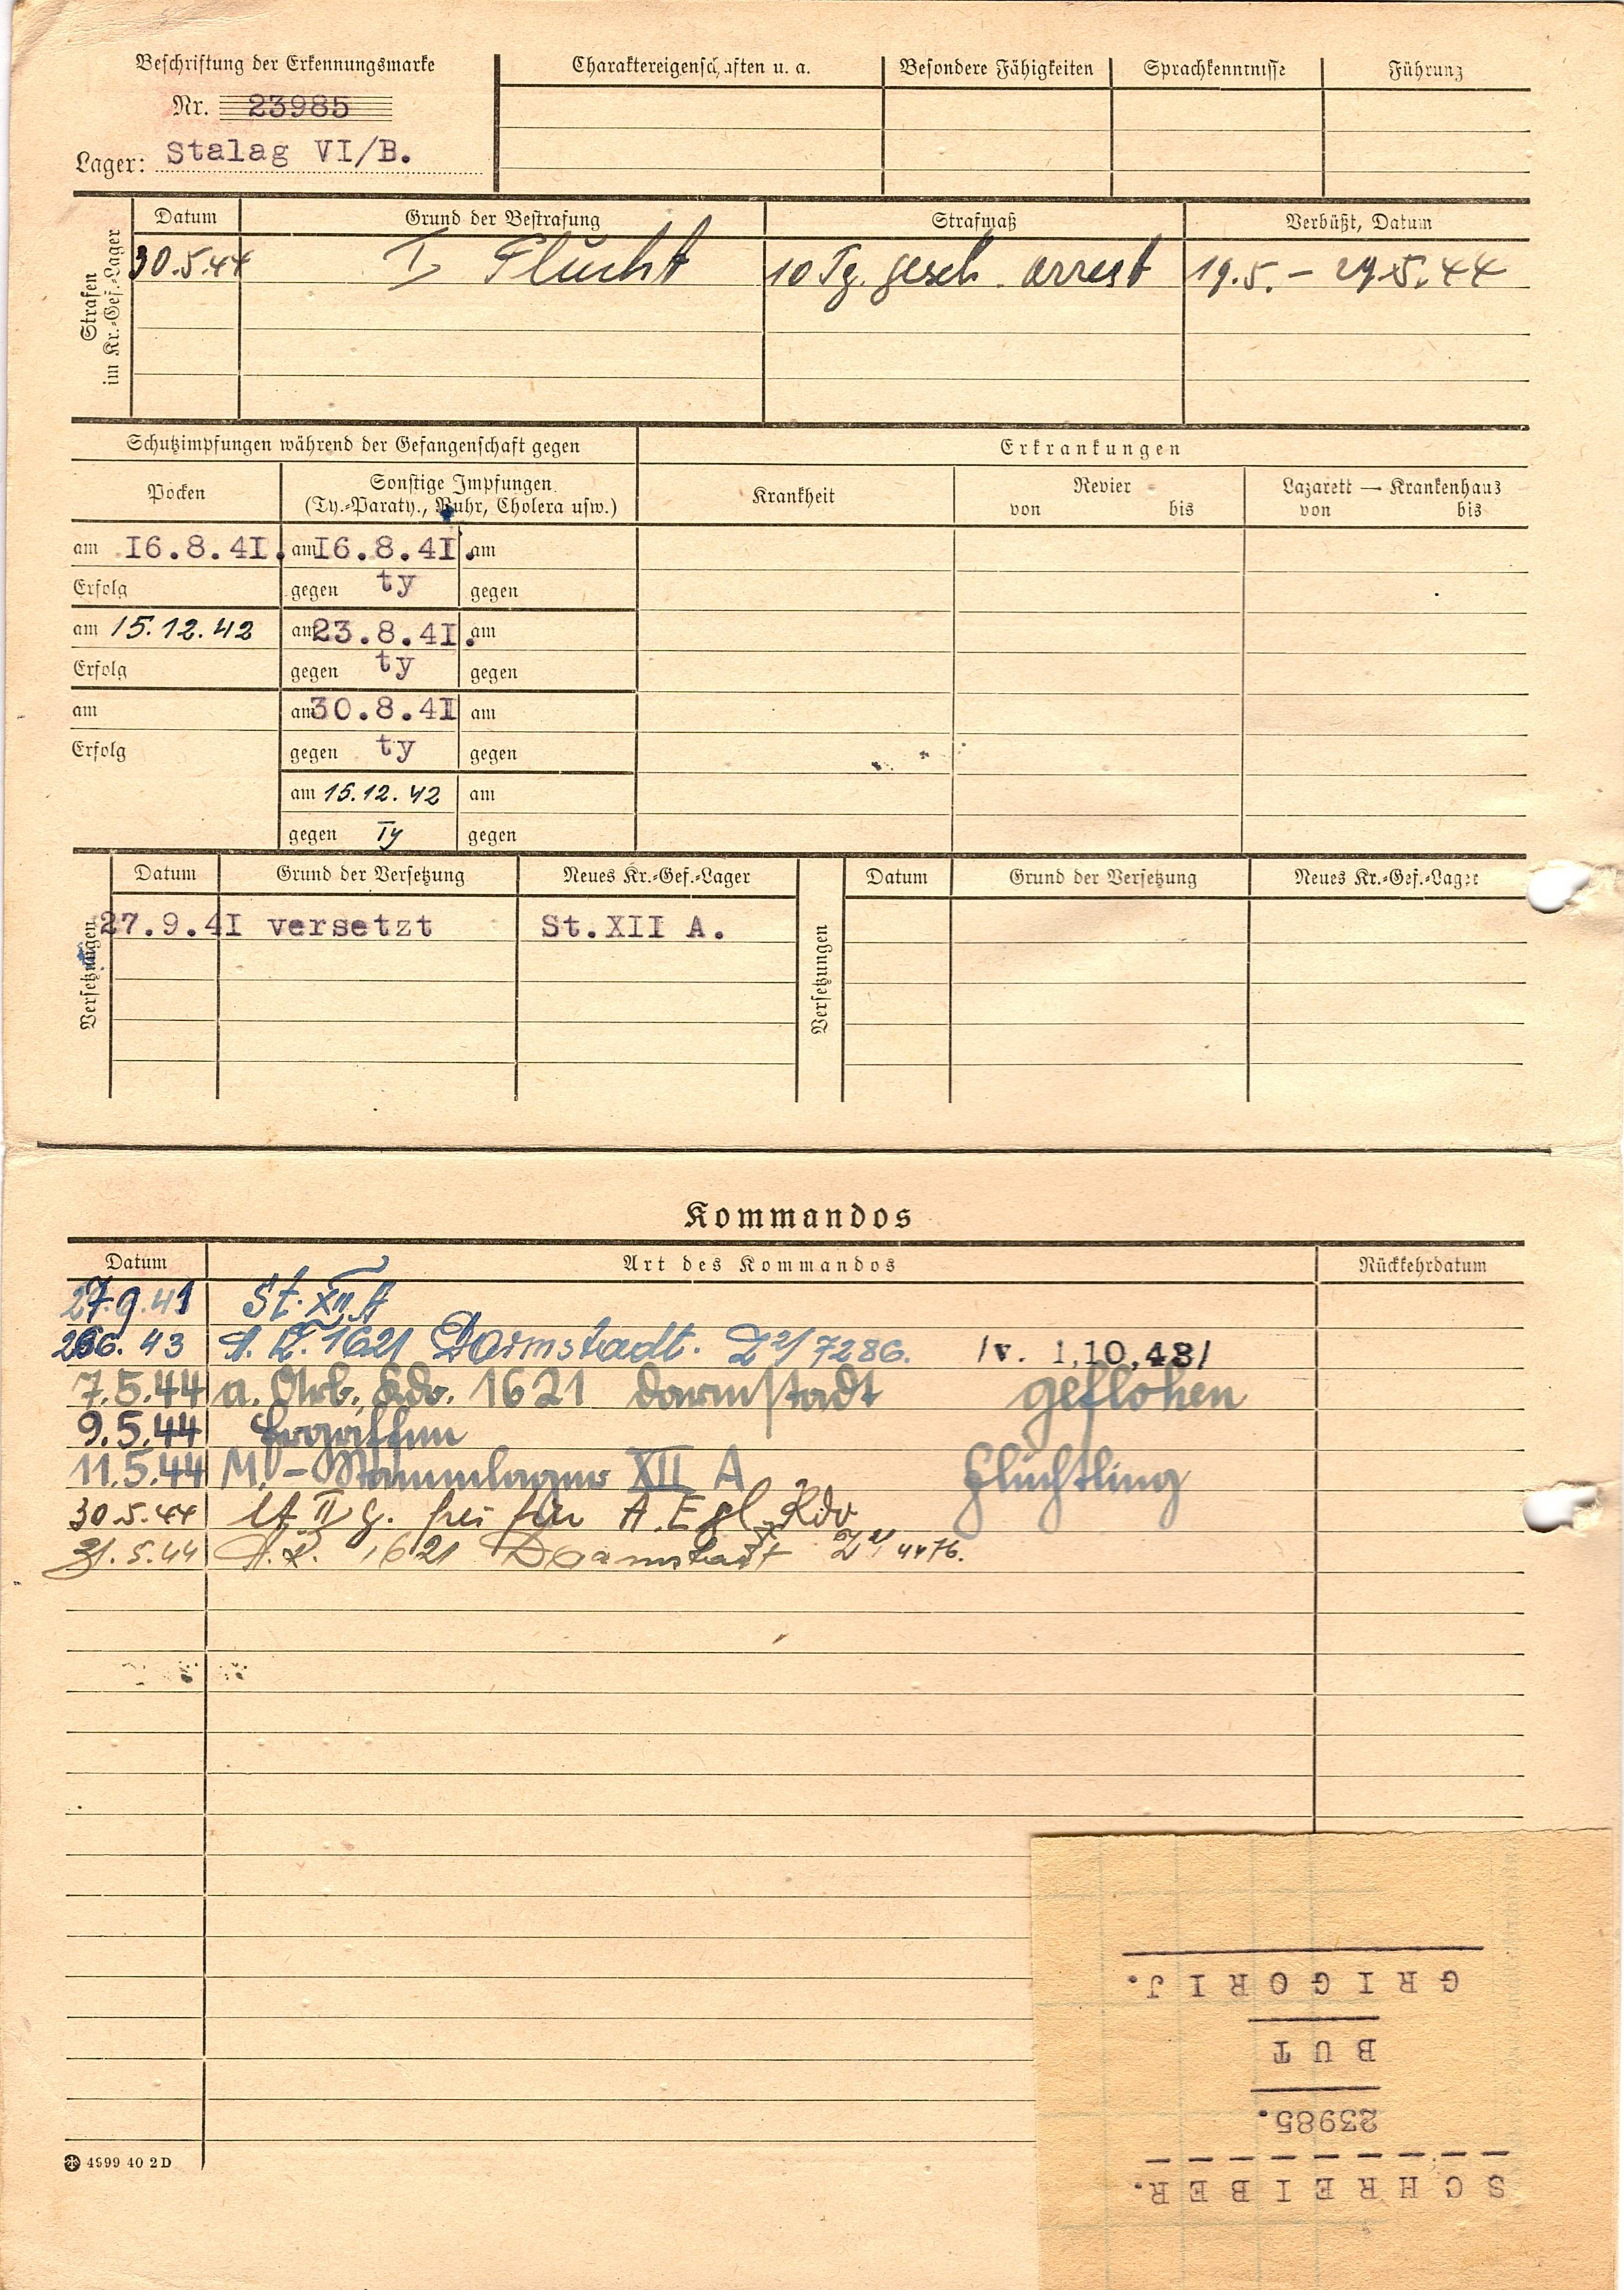 Beschriftung der Erkennungsmarke
Nr. 23985
Lager: Stalag VI/B.
Charaktereigenschaften u. a. Besondere Fähigkeiten Sprachkenntnisse Führung
Strafen im Kr.-Gef.-Lager
Datum Grund der Bestrafung Strafmaß Verbüßt, Datum
30.5.44 I Flucht 10 Tg. gesch. arrest 19.5. - 29.5.44
Schutzimpfungen während der Gefangenschaft gegen Erkrankungen
Pocken Sonstige Impfungen (Ty.-Paraty., Ruhr, Cholera usw.) Krankheit Revier von bis Lazarett — Krankenhaus von bis
am I6.8.4I. am I6.8.4I. am
Erfolg gegen ty gegen
am 15.12.42 am 23.8.4I. am
Erfolg gegen ty gegen
am am 30.8.4I am
Erfolg gegen ty gegen
am 15.12.42 am
gegen Ty gegen
Versetzungen Datum Grund der Versetzung Neues Kr.-Gef.-Lager Versetzungen Datum Grund der Versetzung Neues Kr.-Gef.-Lager
27.9.4I versetzt St.XII A.
Kommandos
Datum Art des Kommandos Rückkehrdatum
27.9.41 St. XII A
6. 43 A. K. 1621 Darmstadt. 7286. /v. 1.10.43/
7.5.44 a. Arb. Kdo. 1621 Darmstadt geflohen
9.5.44 Ergriffen
11.5.44 M.-Stammlager XII A Flüchtling
30.5.44 frei für A. E Kdo
31.5.44 A.K. 1621 Darmstadt 4476.
4999 40 2 D
SCHREIBER.
23985.
BUT
GRIGORIJ.